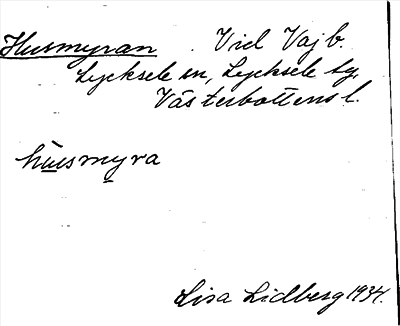 Husmyran . Vid Vajb.
Lycksele sn, Lycksele tg.
Västerbottens l.
husmyra
Lisa Lidberg 1934.